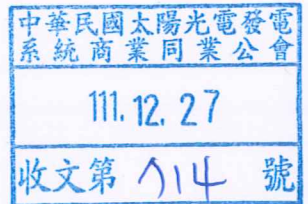 中華民國太陽光電發電
系統商業同業公會
111.12.27
收文第 714 號